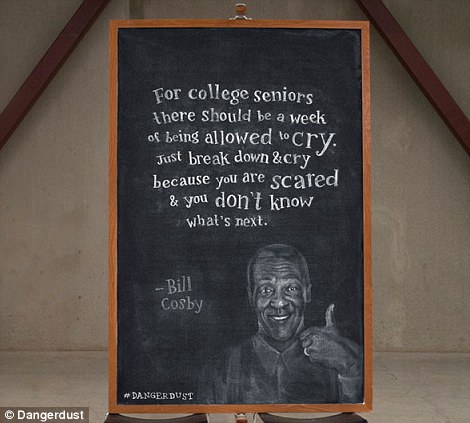 For college seniors
there should be a week
of being allowed to cry.
Just break down & cry
because you are scared
& you don't know
what's next.
- Bill
Cosby
#DANGERDUST
© Dangerdust